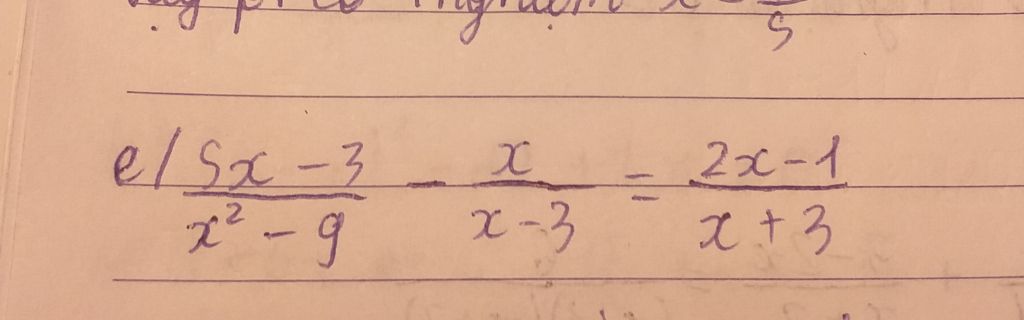 x =
5
e/ (5x - 3)/(x² - 9) - x/(x - 3) = (2x - 1)/(x + 3)